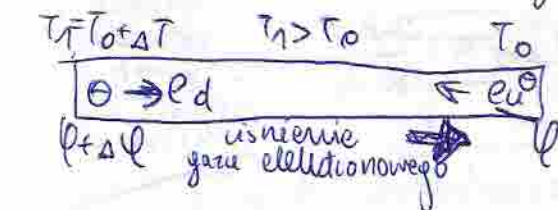 T₁=T₀+ΔT T₁>T₀ T₀
⊖ → ρd ← ρu ⊖
φ+Δφ ciśnienie φ
gazu elektronowego